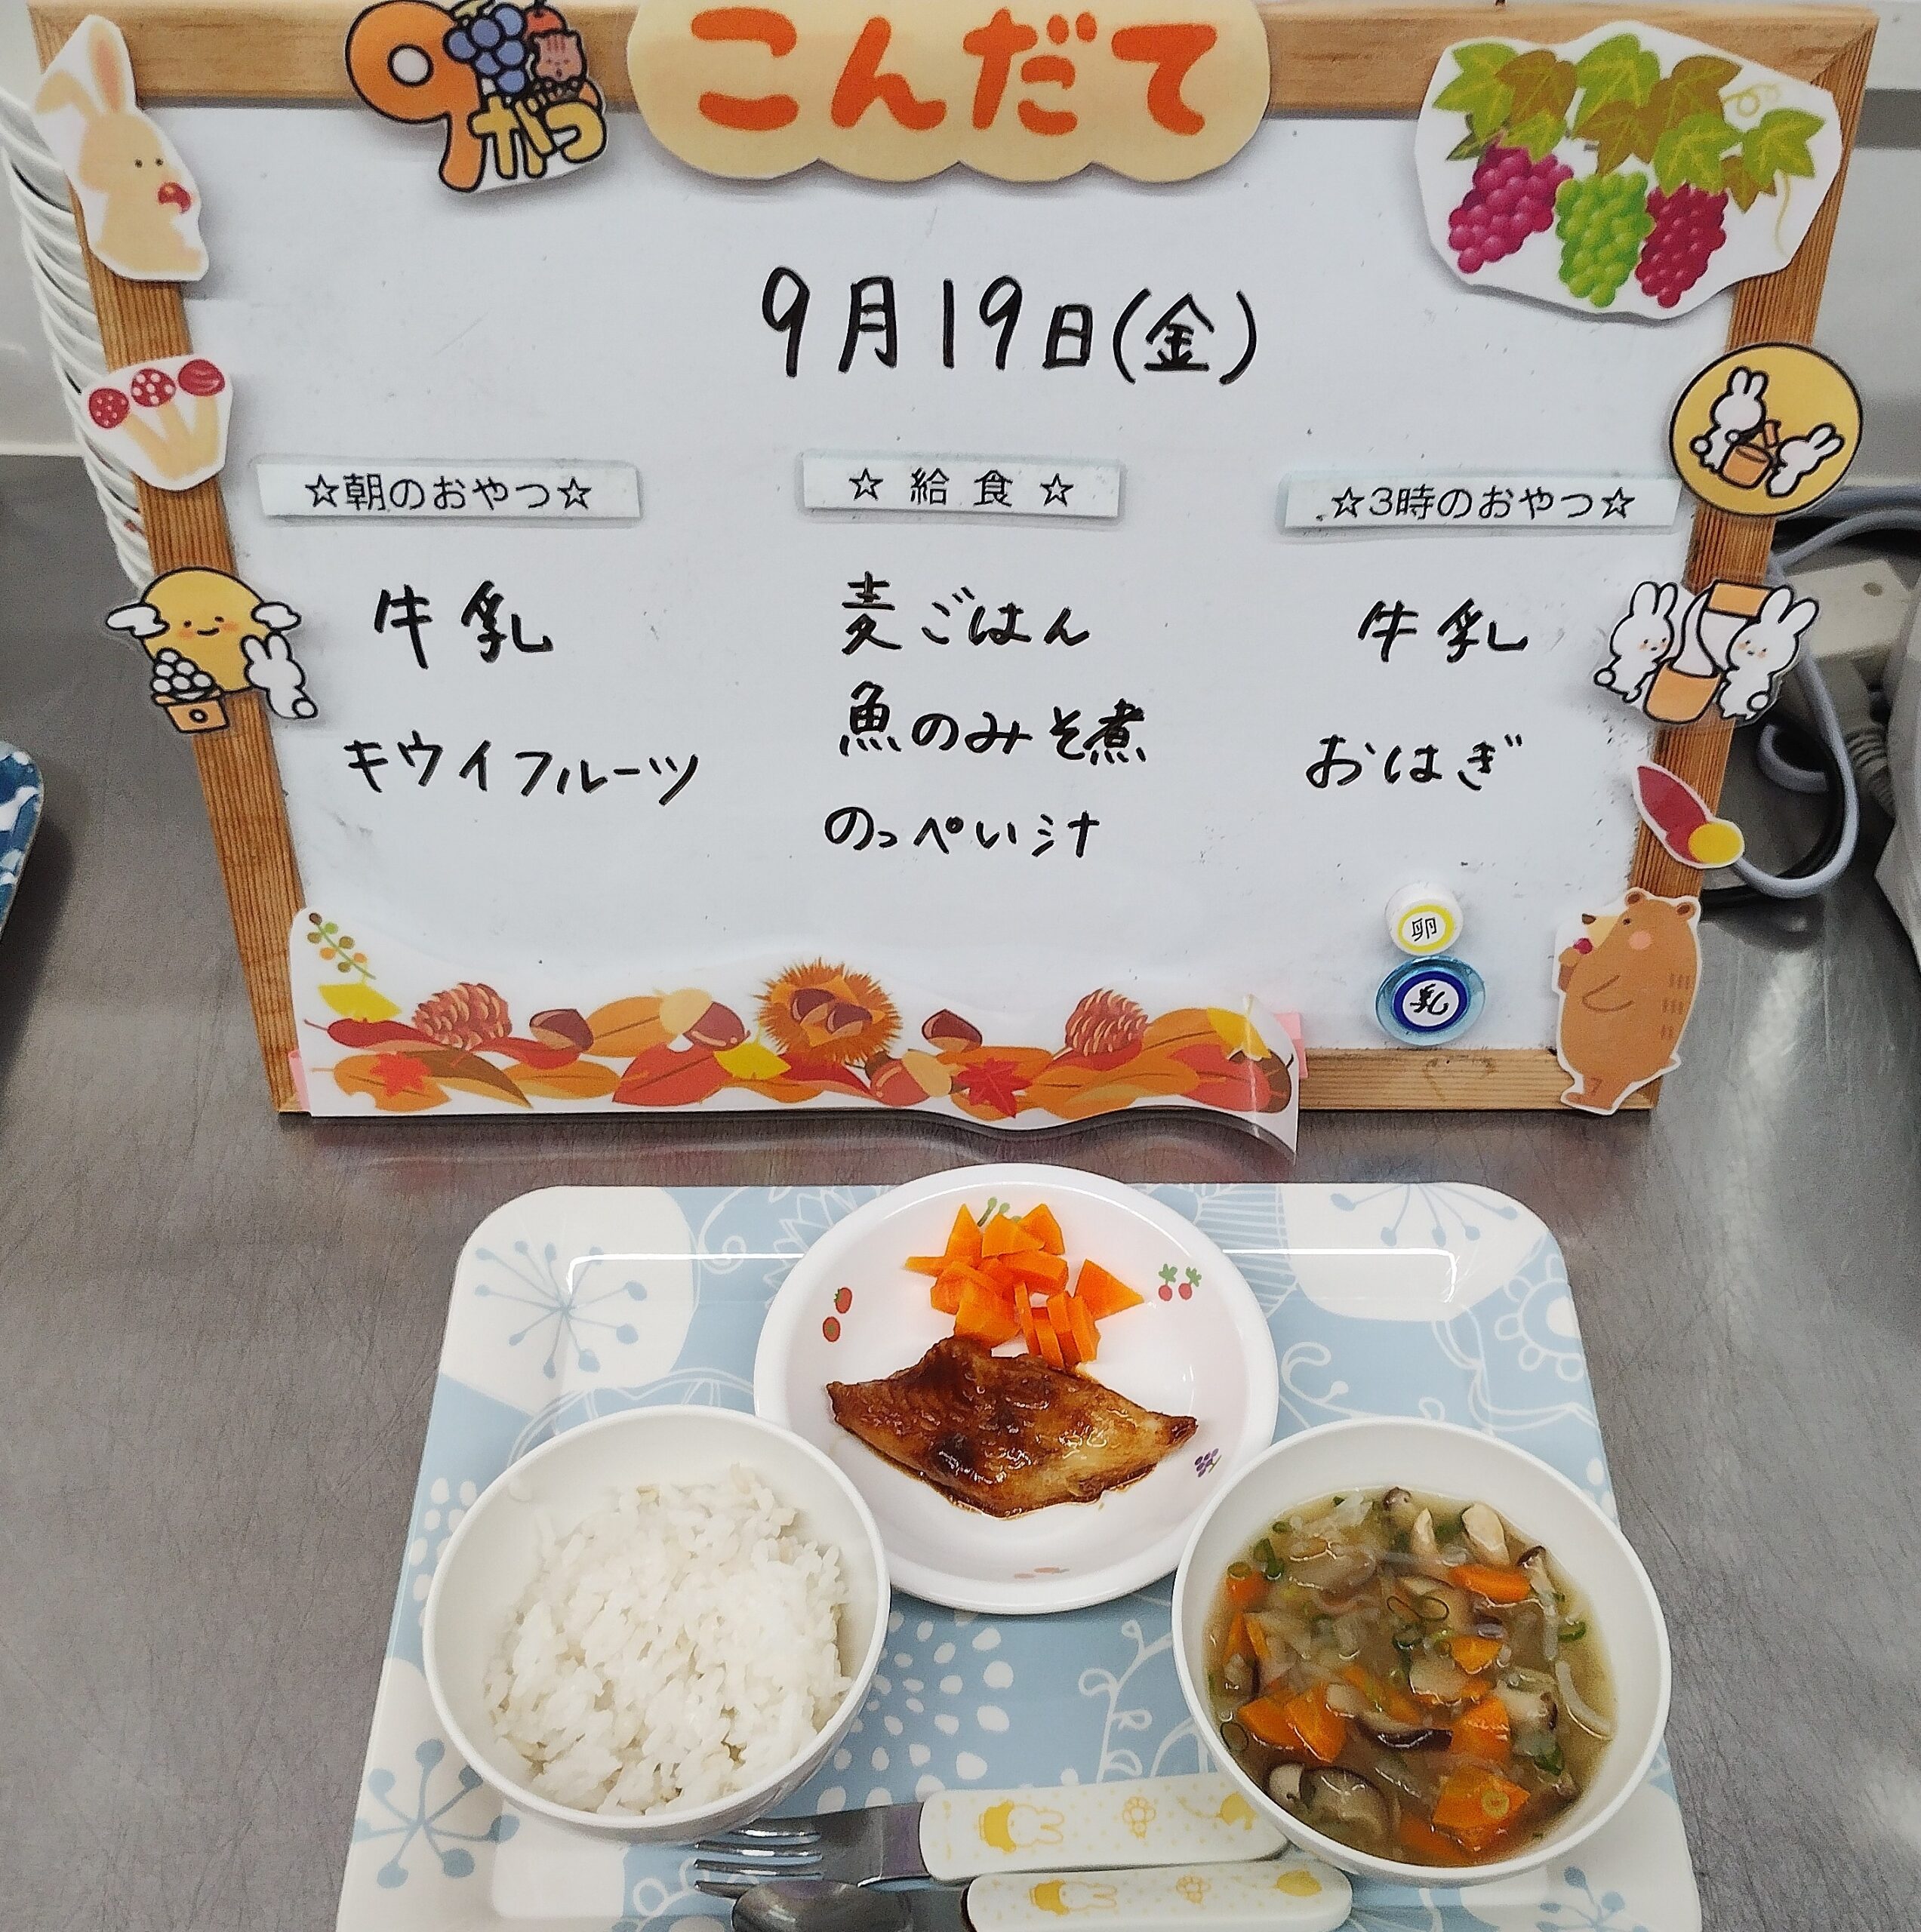 9がつ
こんだて
9月19日(金)
☆朝のおやつ☆
牛乳
キウイフルーツ
☆給食☆
麦ごはん
魚のみそ煮
のっぺい汁
☆3時のおやつ☆
牛乳
おはぎ
卵
乳